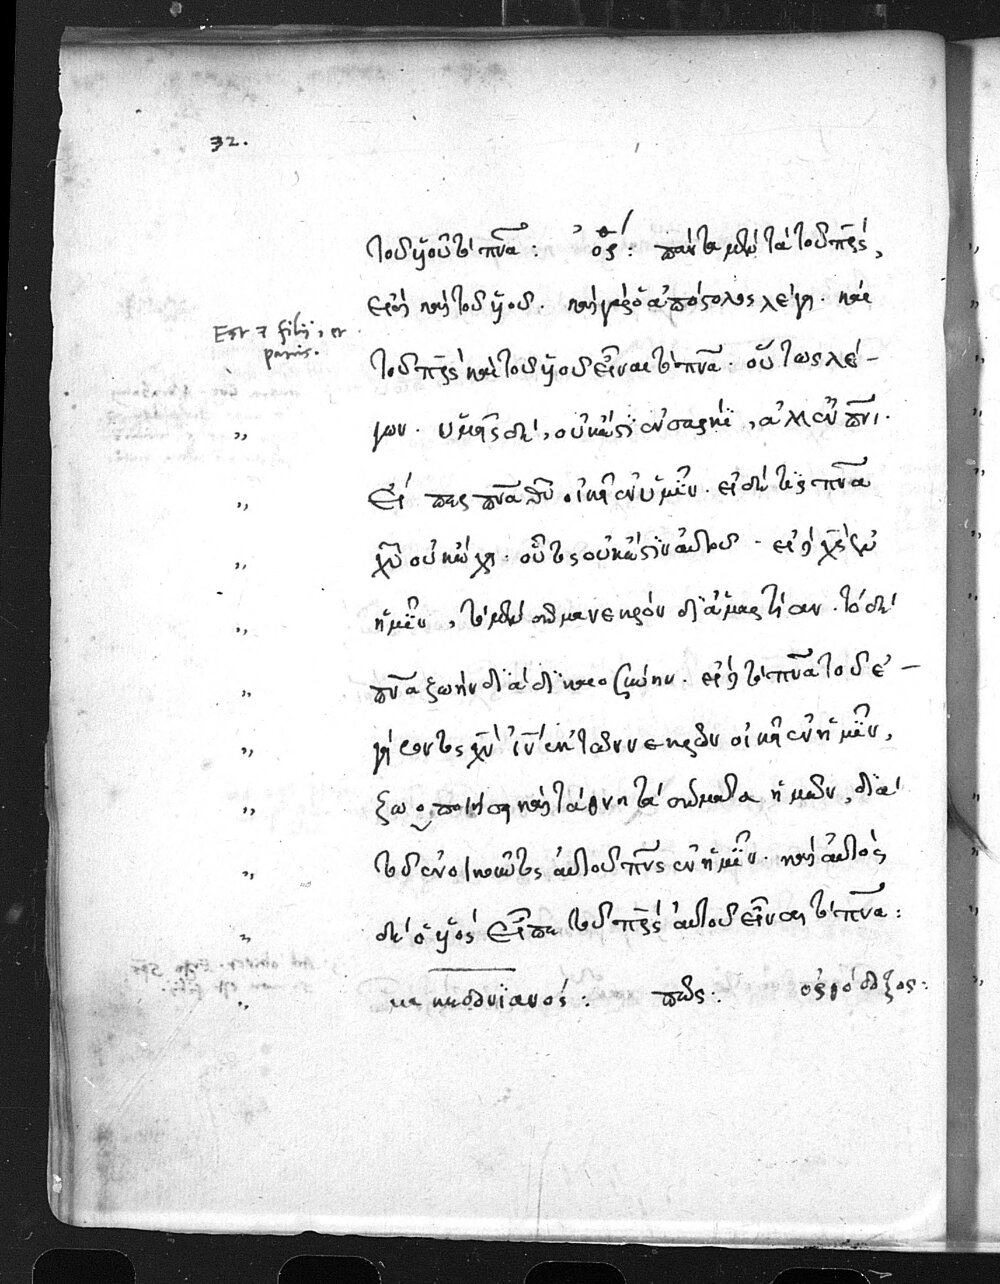 32.
τοῦ υἱοῦ τὸ πνα: ὀρ: πάντα μὲν τὰ τοῦ πρς,
εἰσὶ καὶ τοῦ υἱοῦ. καὶ γὰρ ὁ ἀπόστολος λέγει. καὶ
Est & filij, et
patris.
τοῦ πρς καὶ τοῦ υἱοῦ εἶναι τὸ πνα. οὕτως λέ-
γων. ὑμεῖς δὲ, οὐκ ἐστὲ ἐν σαρκὶ, ἀλλ' ἐν πνι.
εἴπερ πνα θυ οἰκεῖ ἐν ὑμῖν. εἰ δέ τις πνα
χυ οὐκ ἔχει. οὗτος οὐκ ἔστιν αὐτοῦ. εἰ δὲ χς ἐν
ἡμῖν, τὸ μὲν σῶμα νεκρὸν δι' ἁμαρτίαν. τὸ δὲ
πνα ζωὴν διὰ δικαιοσύνην. εἰ δὲ τὸ πνα τοῦ ἐ-
γείροντος χν ιν ἐκ τῶν νεκρῶν οἰκεῖ ἐν ἡμῖν,
ζωοποιήσει καὶ τὰ θνητὰ σώματα ἡμῶν, διὰ
τοῦ ἐνοικοῦντος αὐτοῦ πνς ἐν ἡμῖν. καὶ αὐτὸς
δὲ ὁ υἱός εἶπε τοῦ πρς αὐτοῦ εἶναι τὸ πνα:
μακεδονιανός: πῶς: ὀρθόδοξος: